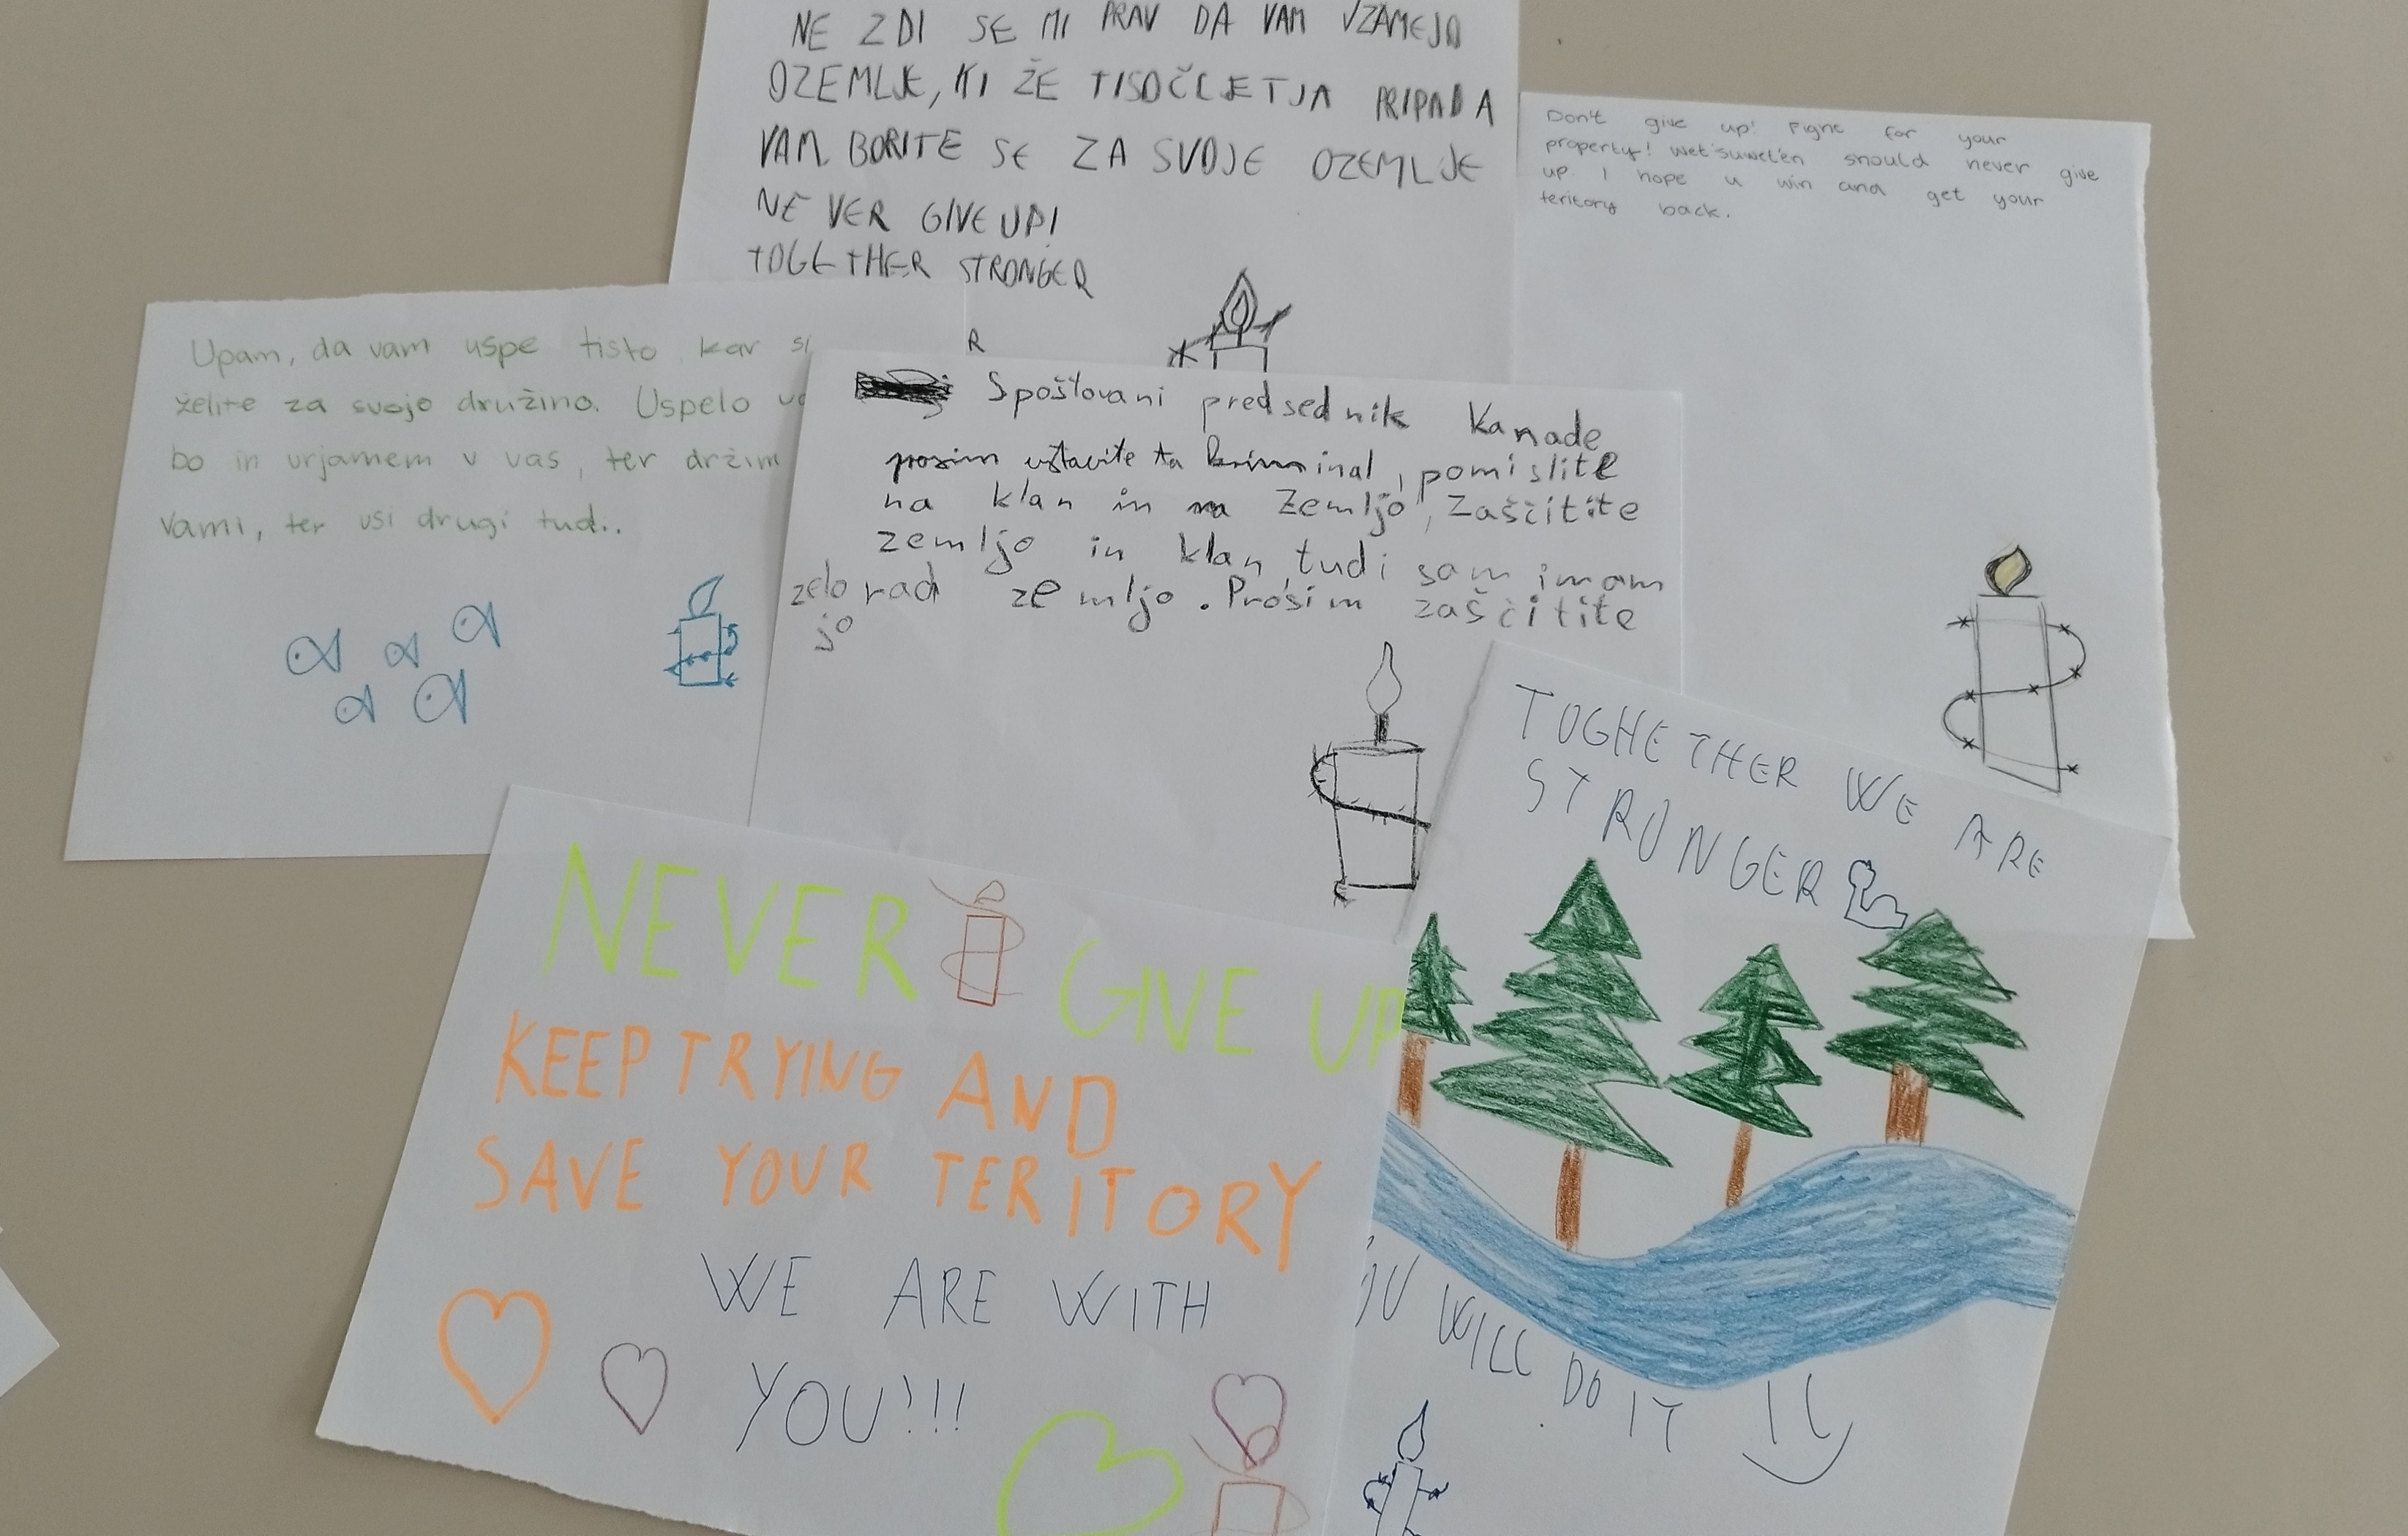 NE ZDI SE MI PRAV DA VAM VZAMEJO
OZEMLJE, KI ŽE TISOČLETJA PRIPADA
VAM. BORITE SE ZA SVOJE OZEMLJE
NEVER GIVE UP!
TOGETHER STRONGER
R
Don't give up! Fight for your
property! Wet'suwet'en should never give
up. I hope u win and get your
teritory back.
Upam, da vam uspe tisto kar si
želite za svojo družino. Uspelo
bo in vrjamem v vas, ter držim
vami, ter vsi drugi tudi.
Spoštovani predsednik Kanade
prosim ustavite ta kriminal, pomislite
na klan in na Zemljo, Zaščitite
zemljo in klan tudi sam imam
zelo rad zemljo. Prosim zaščitite
jo
NEVER GIVE UP
KEEP TRYING AND
SAVE YOUR TERITORY
WE ARE WITH
YOU!!!
TOGHETHER WE ARE
STRONGER
OU WILL DO IT